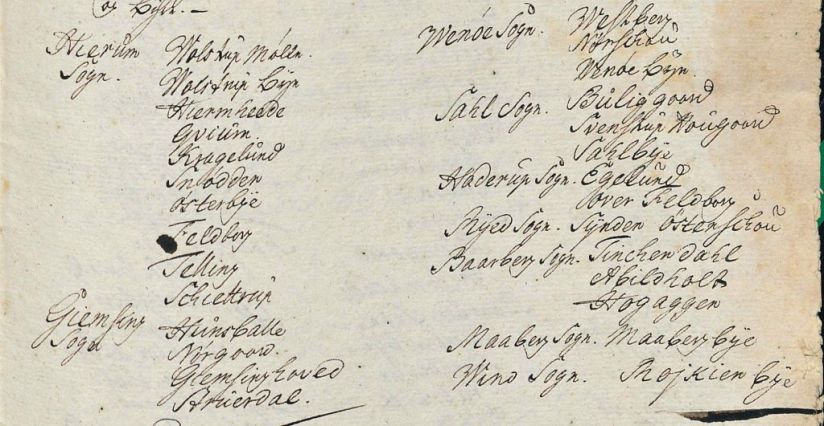 og Byer. —
Hierum Wolstrup Mølle.
Sogn. Wolstrup Bÿe
Hiermheede
Gvium.
Kragelund
Snødden
Østerbÿe
Feldborg
Telling
Schiettrup
Giemsing Hunsballe
Sogn Nørgaard.
Giemsinghoved
Bruerdal.
Wenøe Sogn. Westberg
Nørschou
Wenøe Bÿe.
Sahl Sogn. Buliggaard
Svenstrup Hougaard
Sahlbÿe
Haderup Sogn. Egelund
over Feldborg
Rÿed Sogn. Sÿnden Østenschou
Baarberg Sogn. Tinchendahl
Abildholt
Hogaggen
Maaberg Sogn. Maaberg bÿe
Wind Sogn. Rojkien bÿe